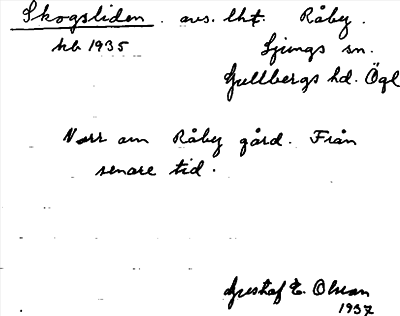 Skogsliden. avs. lht. Råby.
kb 1935 Ljungs sn.
Gullbergs hd. Ögl
Norr om Råby gård. Från
senare tid.
Gustaf E. Olsson
1937